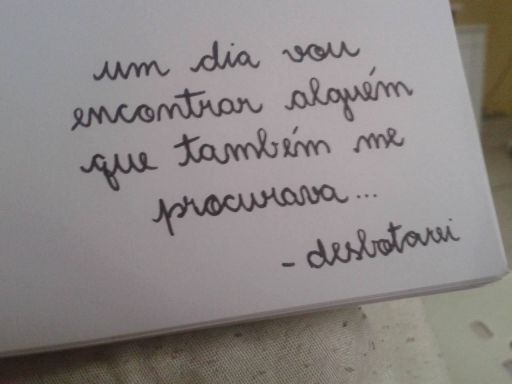 um dia vou
encontrar alguém
que também me
procurava...
- desbotarei